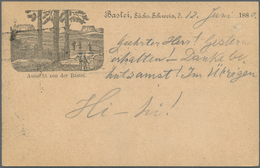 Bastei, Sächs. Schweiz, d. 12 Juni 188
Geehrter Herr! Gestern
erhalten! – Danke be
hutsamst! Im Übrigen
Hi – hi!
Aussicht von der Bastei.